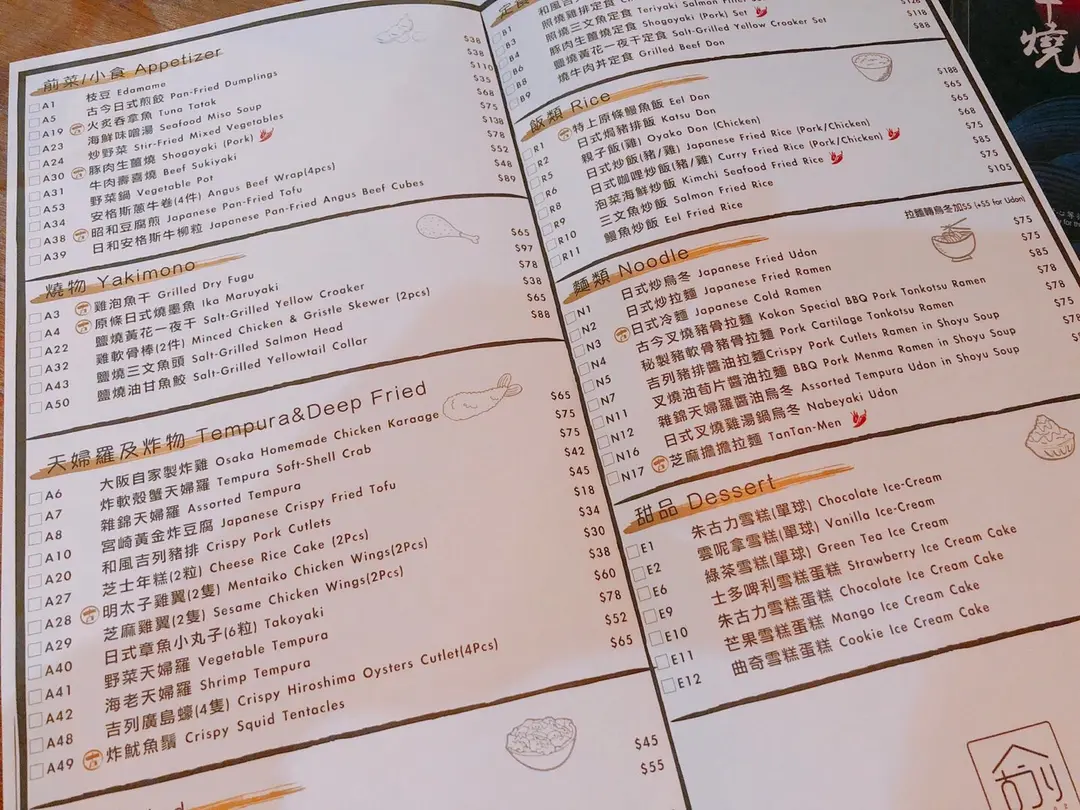 前菜/小食 Appetizer
A1 枝豆 Edamame $38
A5 古今日式煎餃 Pan-Fried Dumplings $38
A19 火炙吞拿魚 Tuna Tatak $110
A23 海鮮味噌湯 Seafood Miso Soup $35
A24 炒野菜 Stir-Fried Mixed Vegetables $68
A30 豚肉生薑燒 Shogayaki (Pork) $75
A31 牛肉壽喜燒 Beef Sukiyaki $138
A53 野菜鍋 Vegetable Pot $78
A34 安格斯蔥牛卷(4件) Angus Beef Wrap(4pcs) $52
A38 昭和豆腐煎 Japanese Pan-Fried Tofu $48
A39 日和安格斯牛柳粒 Japanese Pan-Fried Angus Beef Cubes $89
燒物 Yakimono
A3 雞泡魚干 Grilled Dry Fugu $65
A4 原條日式燒墨魚 Ika Maruyaki $97
A22 鹽燒黃花一夜干 Salt-Grilled Yellow Croaker $78
A32 雞軟骨棒(2件) Minced Chicken & Gristle Skewer (2pcs) $38
A43 鹽燒三文魚頭 Salt-Grilled Salmon Head $65
A50 鹽燒油甘魚鮫 Salt-Grilled Yellowtail Collar $88
天婦羅及炸物 Tempura&Deep Fried
A6 大阪自家製炸雞 Osaka Homemade Chicken Karaage $65
A7 炸軟殼蟹天婦羅 Tempura Soft-Shell Crab $75
A8 雜錦天婦羅 Assorted Tempura $75
A10 宮崎黃金炸豆腐 Japanese Crispy Fried Tofu $42
A20 和風吉列豬排 Crispy Pork Cutlets $45
A27 芝士年糕(2粒) Cheese Rice Cake (2Pcs) $18
A28 明太子雞翼(2隻) Mentaiko Chicken Wings(2Pcs) $34
A29 芝麻雞翼(2隻) Sesame Chicken Wings(2Pcs) $30
A40 日式章魚小丸子(6粒) Takoyaki $38
A41 野菜天婦羅 Vegetable Tempura $60
A42 海老天婦羅 Shrimp Tempura $78
A48 吉列廣島蠔(4隻) Crispy Hiroshima Oysters Cutlet(4Pcs) $52
A49 炸魷魚鬚 Crispy Squid Tentacles $65
$45
$55
定食
B1 和風
B3 照燒雞排定食
B4 照燒三文魚定食 Teriyaki Salmon
B6 豚肉生薑燒定食 Shogayaki (Pork) Set
B8 鹽燒黃花一夜干定食 Salt-Grilled Yellow Croaker Set $118
B9 燒牛肉丼定食 Grilled Beef Don $88
飯類 Rice
R1 特上原條鰻魚飯 Eel Don $188
R2 日式焗豬排飯 Katsu Don $65
R5 親子飯(雞) Oyako Don (Chicken) $65
R6 日式炒飯(豬/雞) Japanese Fried Rice (Pork/Chicken) $68
R8 日式咖哩炒飯(豬/雞) Curry Fried Rice (Pork/Chicken) $75
R9 泡菜海鮮炒飯 Kimchi Seafood Fried Rice $85
R10 三文魚炒飯 Salmon Fried Rice $75
R11 鰻魚炒飯 Eel Fried Rice $105
麵類 Noodle
拉麵轉烏冬加$5 (+$5 for Udon)
N1 日式炒烏冬 Japanese Fried Udon $75
N2 日式炒拉麵 Japanese Fried Ramen $75
N3 日式冷麵 Japanese Cold Ramen $85
N4 古今叉燒豬骨拉麵 Kokon Special BBQ Pork Tonkotsu Ramen $78
N5 秘製豬軟骨豬骨拉麵 Pork Cartilage Tonkotsu Ramen $78
N7 吉列豬排醬油拉麵 Crispy Pork Cutlets Ramen in Shoyu Soup $75
N11 叉燒油荀片醬油拉麵 BBQ Pork Menma Ramen in Shoyu Soup
N12 雜錦天婦羅醬油烏冬 Assorted Tempura Udon in Shoyu Soup
N16 日式叉燒雞湯鍋烏冬 Nabeyaki Udon
N17 芝麻擔擔拉麵 TanTan-Men
甜品 Dessert
E1 朱古力雪糕(單球) Chocolate Ice-Cream
E2 雲呢拿雪糕(單球) Vanilla Ice-Cream
E6 綠茶雪糕(單球) Green Tea Ice Cream
E9 士多啤利雪糕蛋糕 Strawberry Ice Cream Cake
E10 朱古力雪糕蛋糕 Chocolate Ice Cream Cake
E11 芒果雪糕蛋糕 Mango Ice Cream Cake
E12 曲奇雪糕蛋糕 Cookie Ice Cream Cake
燒